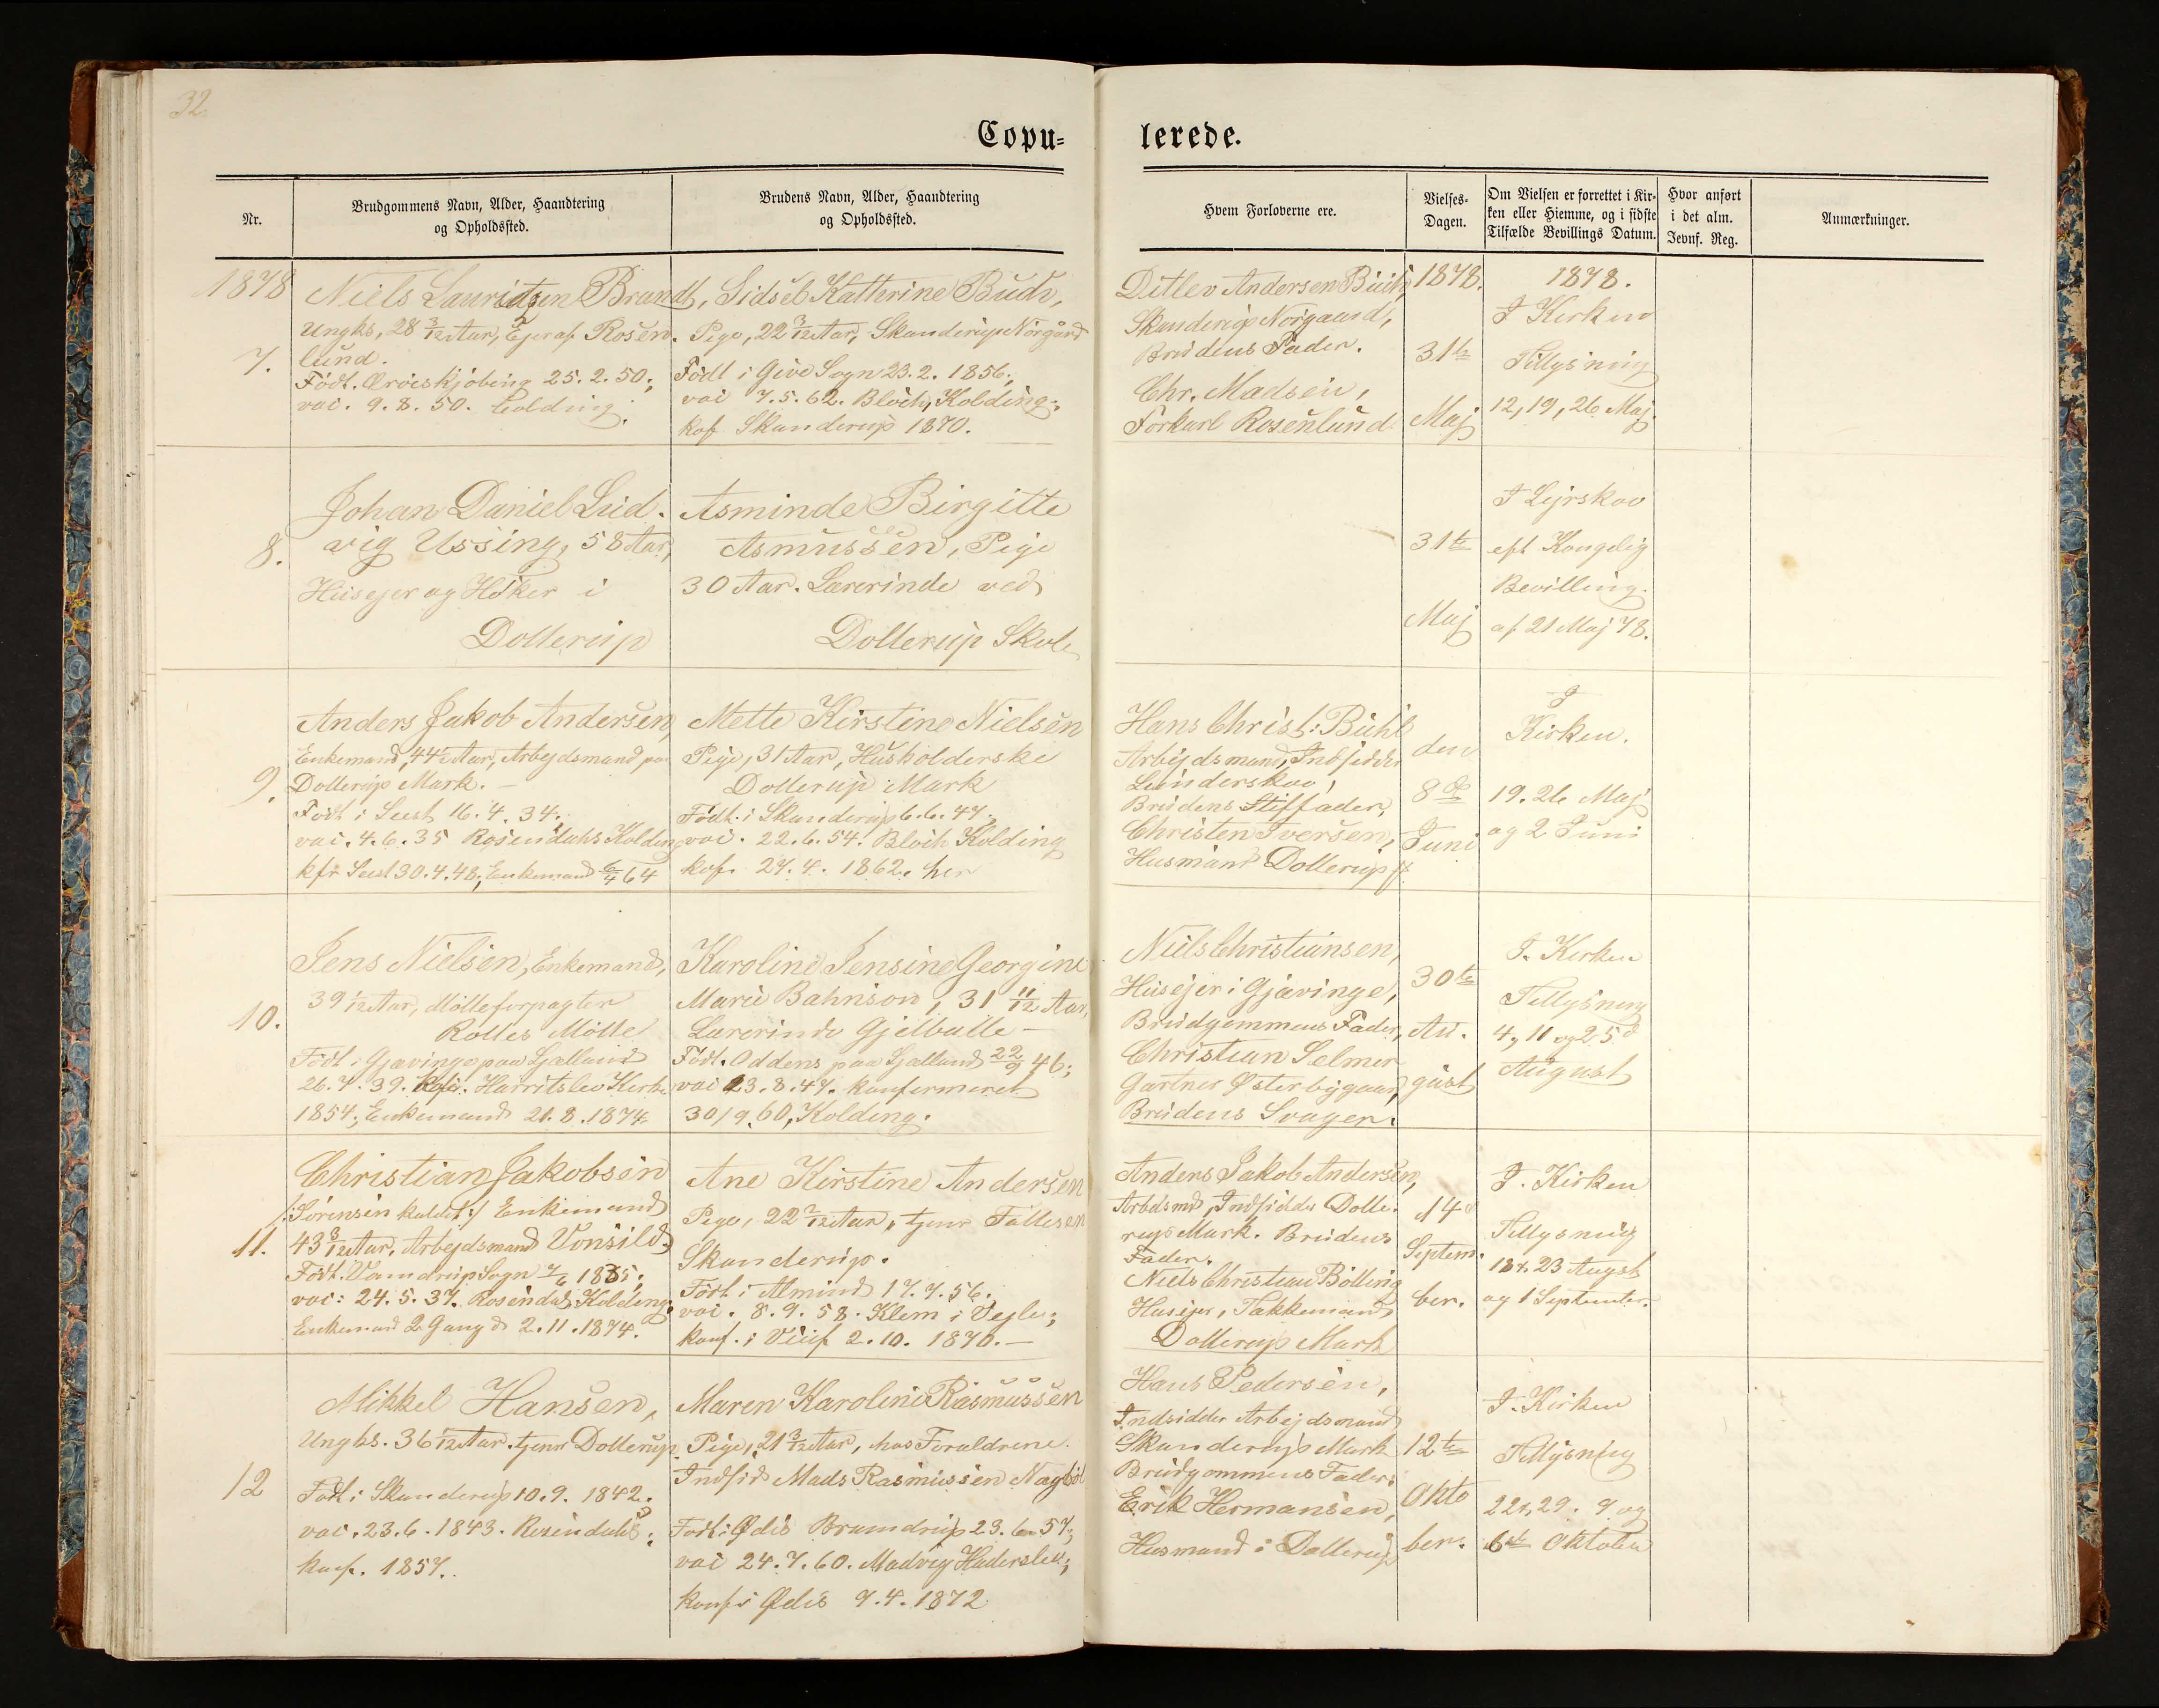 32.
Copu-
lerede.
Nr.
Brudgommens Navn, Alder, Haandtering
og Opholdssted.
Brudens Navn, Alder, Haandtering
og Opholdssted.
Hvem Forloverne ere.
Vielses-
Dagen.
Om Vielsen er forrettet i Kir-
ken eller Hiemme, og i sidste
Tilfælde Bevillings Datum.
Hvor anført
i det alm.
Jevnf. Reg.
Anmærkninger.
1878
7.
Niels Lauridtzen Brandt,
Ungks, 28 3/12 Aar, Ejer af Rosen-
lund.
Født. Ærøeskjøbing 25.2.50.;
vac. 9.8.50. Colding.
Sidsel Kathrine Buch,
Pige, 22 3/12 Aar, Skanderup Nørgård
Født i Give Sogn 23.2.1856.,
vac 7.5.62. Bloch, Kolding;
kof Skanderup 1870.
Ditlev Andersen Buch,
Skanderup Norgaard,
Brudens Fader.
Chr. Madsen,
Forkarl Rosenlund
1878.
31te
Maj
1878.
I Kirken
Tillysning
12, 19, 26 Maj.
8.
Johan Daniel Lud-
vig Ussing, 58 Aar,
Husejer og Høker i
Dollerup
Asminde Birgitte
Asmussen, Pige
30 Aar. Lærerinde ved
Dollerup Skole
31te
Maj
I Lejrskov
eft Kongelig
Bevilling.
af 21 Maj 78.
9.
Anders Jakob Andersen,
Enkemand, 44 Aar, Arbejdsmand paa
Dollerup Mark.
Født i Seest 16.4.34.;
vac. 4.6.35 Rosendahs Kolding
kfr Seest 30.4.48; Enkemand 6/4 64
Mette Kirstine Nielsen
Pige, 31 Aar, Husholderske
Dollerup Mark
Født i Skanderup 6.6.47;
vac. 22.6.54. Bloch Kolding
kof. 27.4.1862. her
Hans Christ: Buhl
Arbejdsmand, Indsidder
Lunderskov,
Brudens Stiffader,
Christen Iversen,
Husmand Dollerup
den
8de
Juni
I
Kirken.
19. 26 Maj
og 2 Juni
10.
Jens Nielsen, Enkemand,
39 1/12 Aar, Mølleforpagter
Rolles Mølle
Født i Gjævinge paa Sjælland
26.7.39. Kofi. Harritslev Kirke
1854; Enkemand 21.8.1874.
Karoline Jensine Georgine
Marie Bahnson, 31 11/12 Aar,
Lærerinde Gjelballe -
Født. Oddens paa Sjælland 22/9 46;
vac 23.8.47. konfirmeret
30/9.60, Kolding.
Niels Christiansen,
Husejer i Gjævinge,
Brudgommens Fader,
Christian Selmer
Gartner Østerbygaard,
Brudens Svager.
30te
Au-
gust
I. Kirken
Tillysning
4, 11 og 25d
August
11.
Christian Jakobsen
/: Sørensen kaldet :/ Enkemand
43 3/12 Aar, Arbejdsmand Vonsild.
Født. Vamdrup Sogn 7/6 1835;
vac: 24.5.37. Rosendal, Kolding;
Enkemand 2 Gang d. 2.11.1874.
Ane Kirstine Andersen
Pige, 22 2/12 Aar, tjenr
Skanderup.
Født i Almind 17.7.56.;
vac. 8.9.58. Klem i Vejle;
konf. i Viuf 2.10.1870. -
Anders Jakob Andersen,
Arbdsmd, Indsidder Dolle-
rup Mark. Brudens
Fader.
Niels Christian Bölling
Husejer, Takkemand,
Dollerup Mark
14d
Septem-
ber.
I. Kirken
Tillysning
18. 23 Augst
og 1 September.
12
Mikkel Hansen,
Ungks. 36 1/12 Aar. tjenr Dollerup
Født i Skanderup 10.9.1842.
vac. 23.6.1843. Rosendals;
konf. 1857.
Maren Karoline Rasmussen
Pige, 21 3/12 Aar, hos Forældrene.
Indsid. Mads Rasmussen Nagbøl
Født i Ødis Bramdrup 23.6.57.;
vac 24.7.60. Madvig Haderslev;
konf i Ødis 7.4.1872
Hans Pedersen,
Indsidder Arbejdsmand
Skanderup Mark
Brudgommens Fader.
Erik Hermansen,
Husmand i Dollerup
12te
Okto
ber.
I. Kirken
Tillysning
22, 29. 9. og
6te Oktober